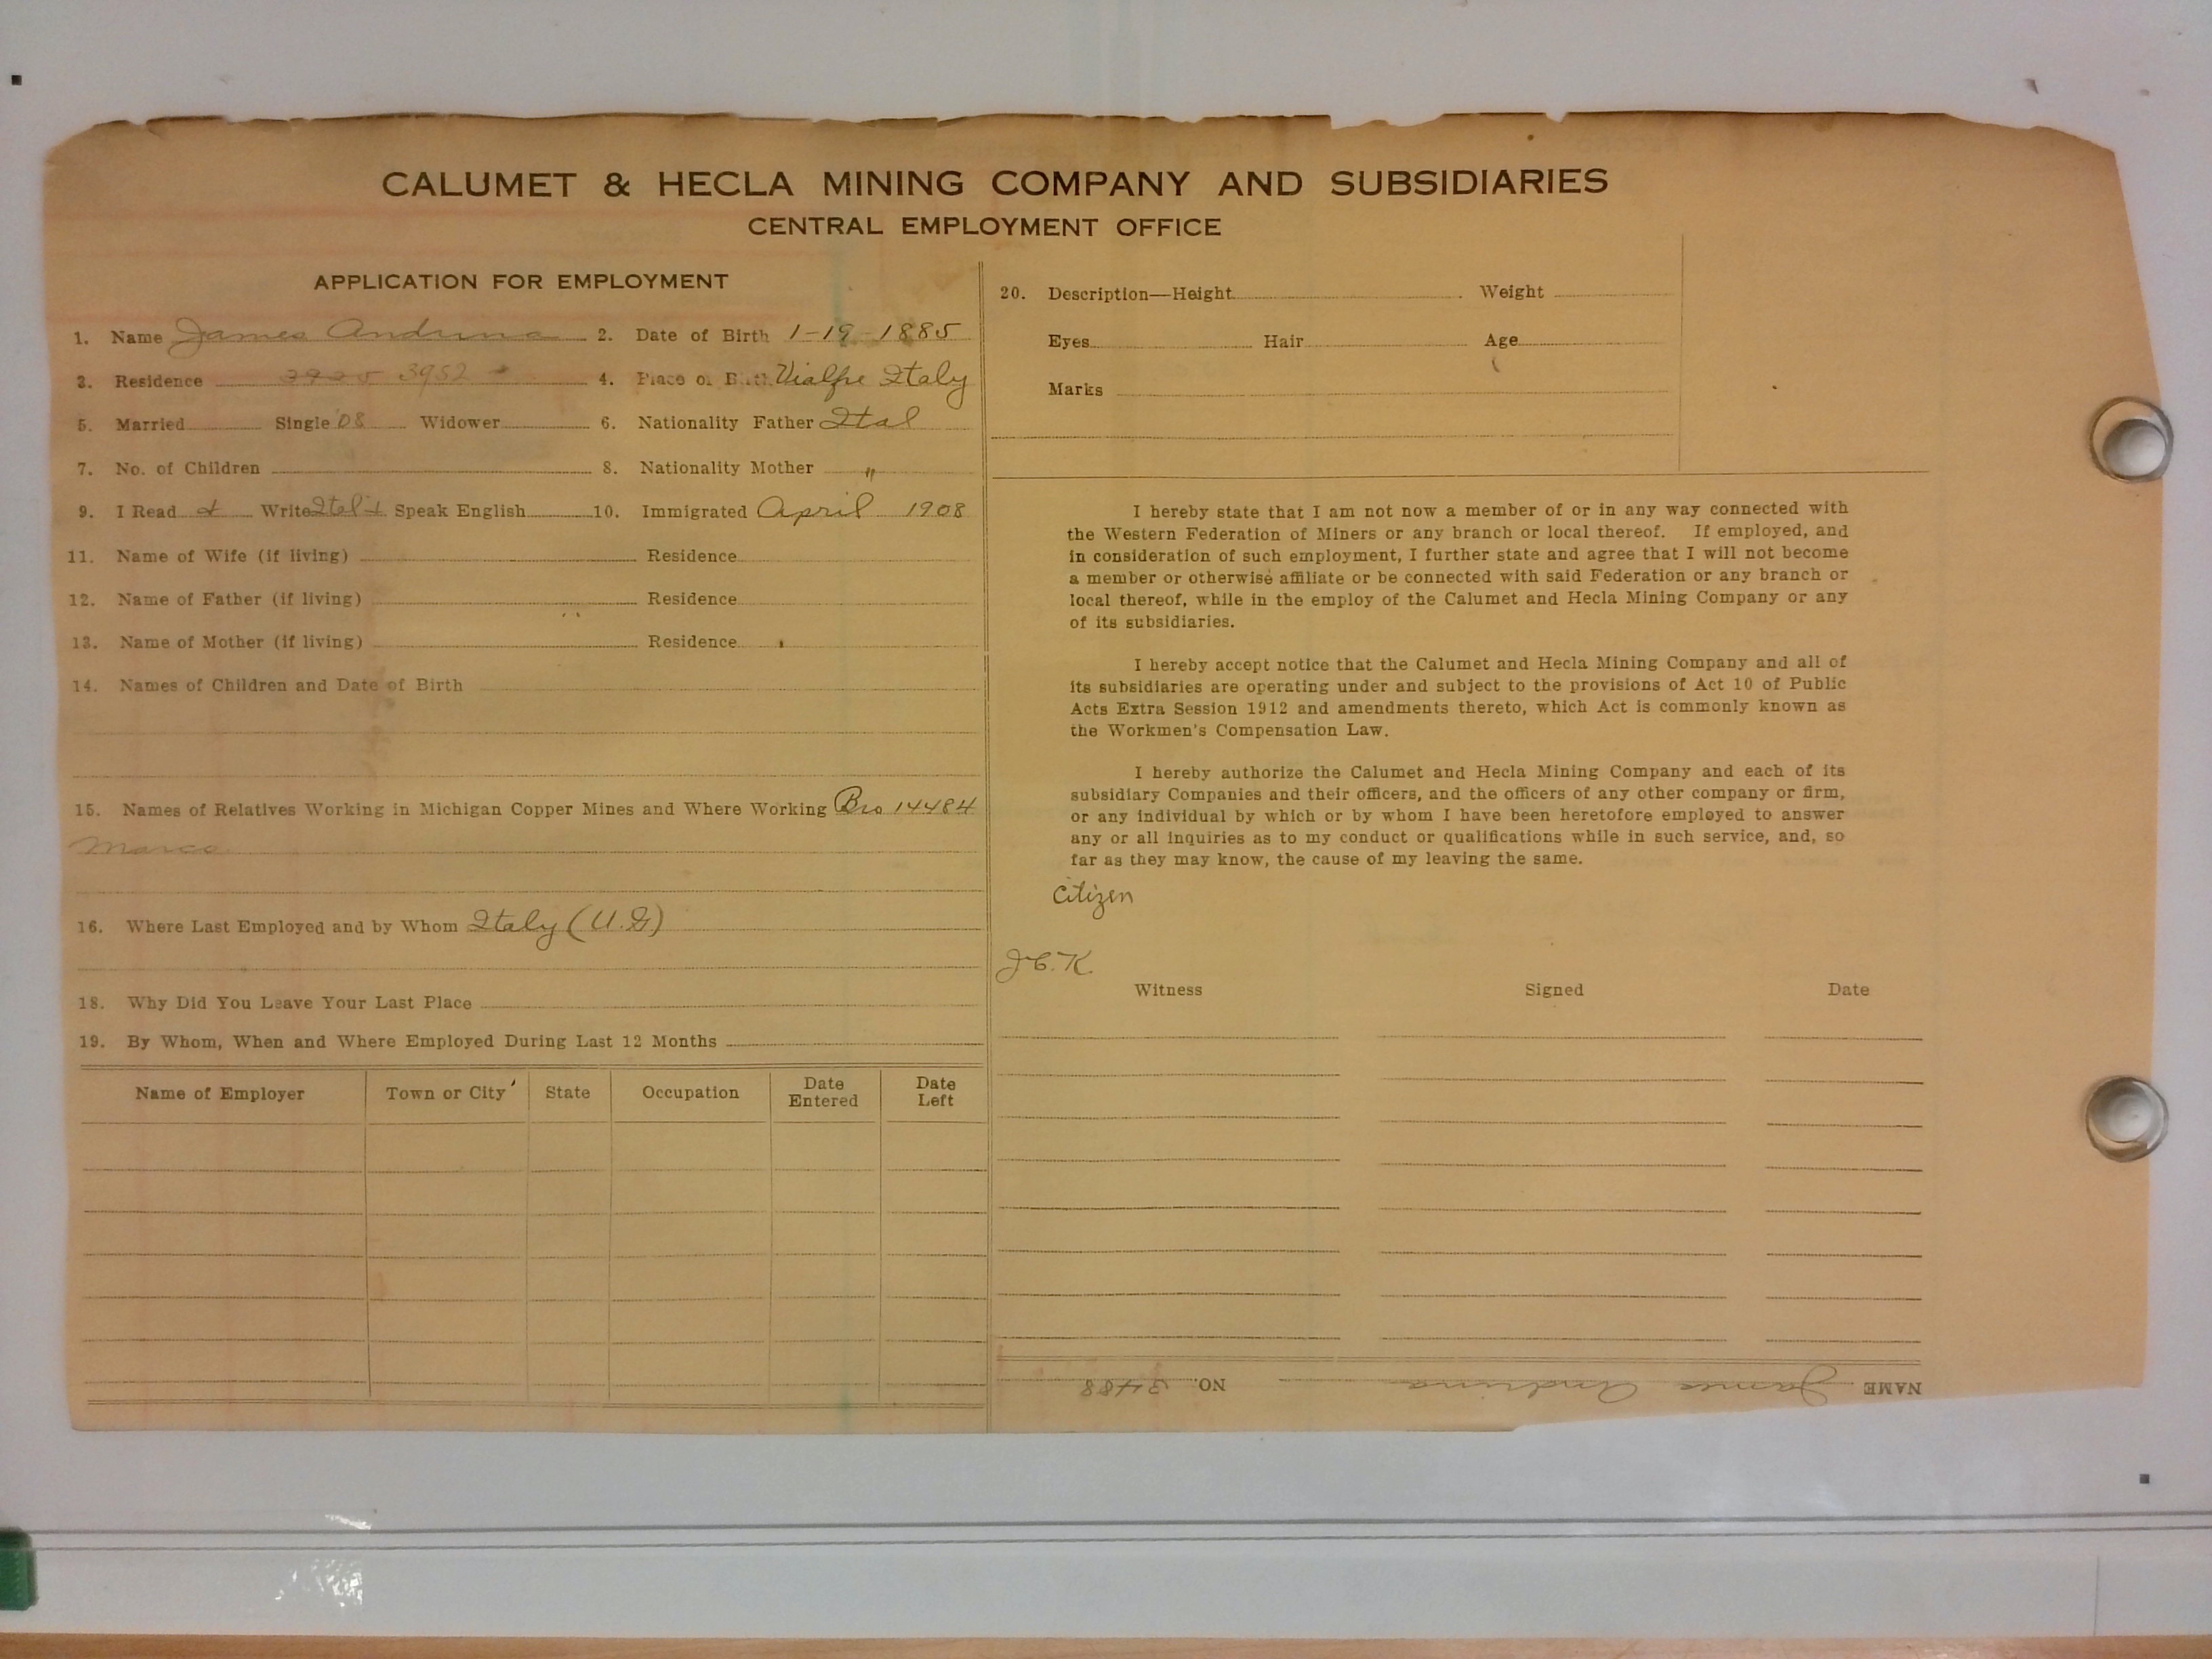 CALUMET & HECLA MINING COMPANY AND SUBSIDIARIES
CENTRAL EMPLOYMENT OFFICE
APPLICATION FOR EMPLOYMENT
1. Name James Andrina 2. Date of Birth 1-19-1885
3. Residence 3952 4. Place of Birth Vialfre Italy
5. Married Single '08 Widower 6. Nationality Father Ital
7. No. of Children 8. Nationality Mother "
9. I Read & Write Ital + Speak English 10. Immigrated April 1908
11. Name of Wife (if living) Residence
12. Name of Father (if living) Residence
13. Name of Mother (if living) Residence
14. Names of Children and Date of Birth
15. Names of Relatives Working in Michigan Copper Mines and Where Working Bro 14484
Marco
16. Where Last Employed and by Whom Italy (U.G)
18. Why Did You Leave Your Last Place
19. By Whom, When and Where Employed During Last 12 Months
Name of Employer Town or City State Occupation Date Entered Date Left
20. Description—Height Weight
Eyes Hair Age
Marks
I hereby state that I am not now a member of or in any way connected with
the Western Federation of Miners or any branch or local thereof. If employed, and
in consideration of such employment, I further state and agree that I will not become
a member or otherwise affiliate or be connected with said Federation or any branch or
local thereof, while in the employ of the Calumet and Hecla Mining Company or any
of its subsidiaries.
I hereby accept notice that the Calumet and Hecla Mining Company and all of
its subsidiaries are operating under and subject to the provisions of Act 10 of Public
Acts Extra Session 1912 and amendments thereto, which Act is commonly known as
the Workmen's Compensation Law.
I hereby authorize the Calumet and Hecla Mining Company and each of its
subsidiary Companies and their officers, and the officers of any other company or firm,
or any individual by which or by whom I have been heretofore employed to answer
any or all inquiries as to my conduct or qualifications while in such service, and, so
far as they may know, the cause of my leaving the same.
Citizen
J.C.K.
Witness Signed Date
NAME James Andrina NO. 3488